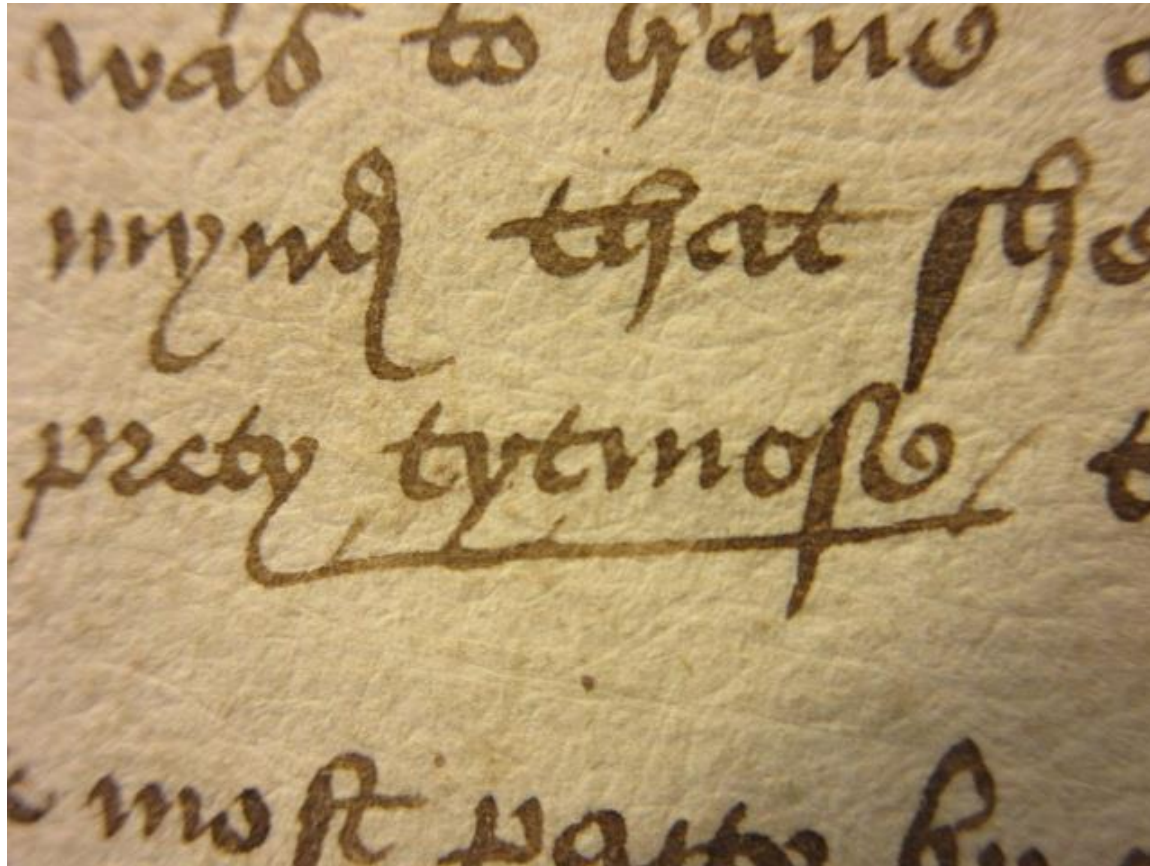 was to haue
mynd that she
prety tytmose
most parte